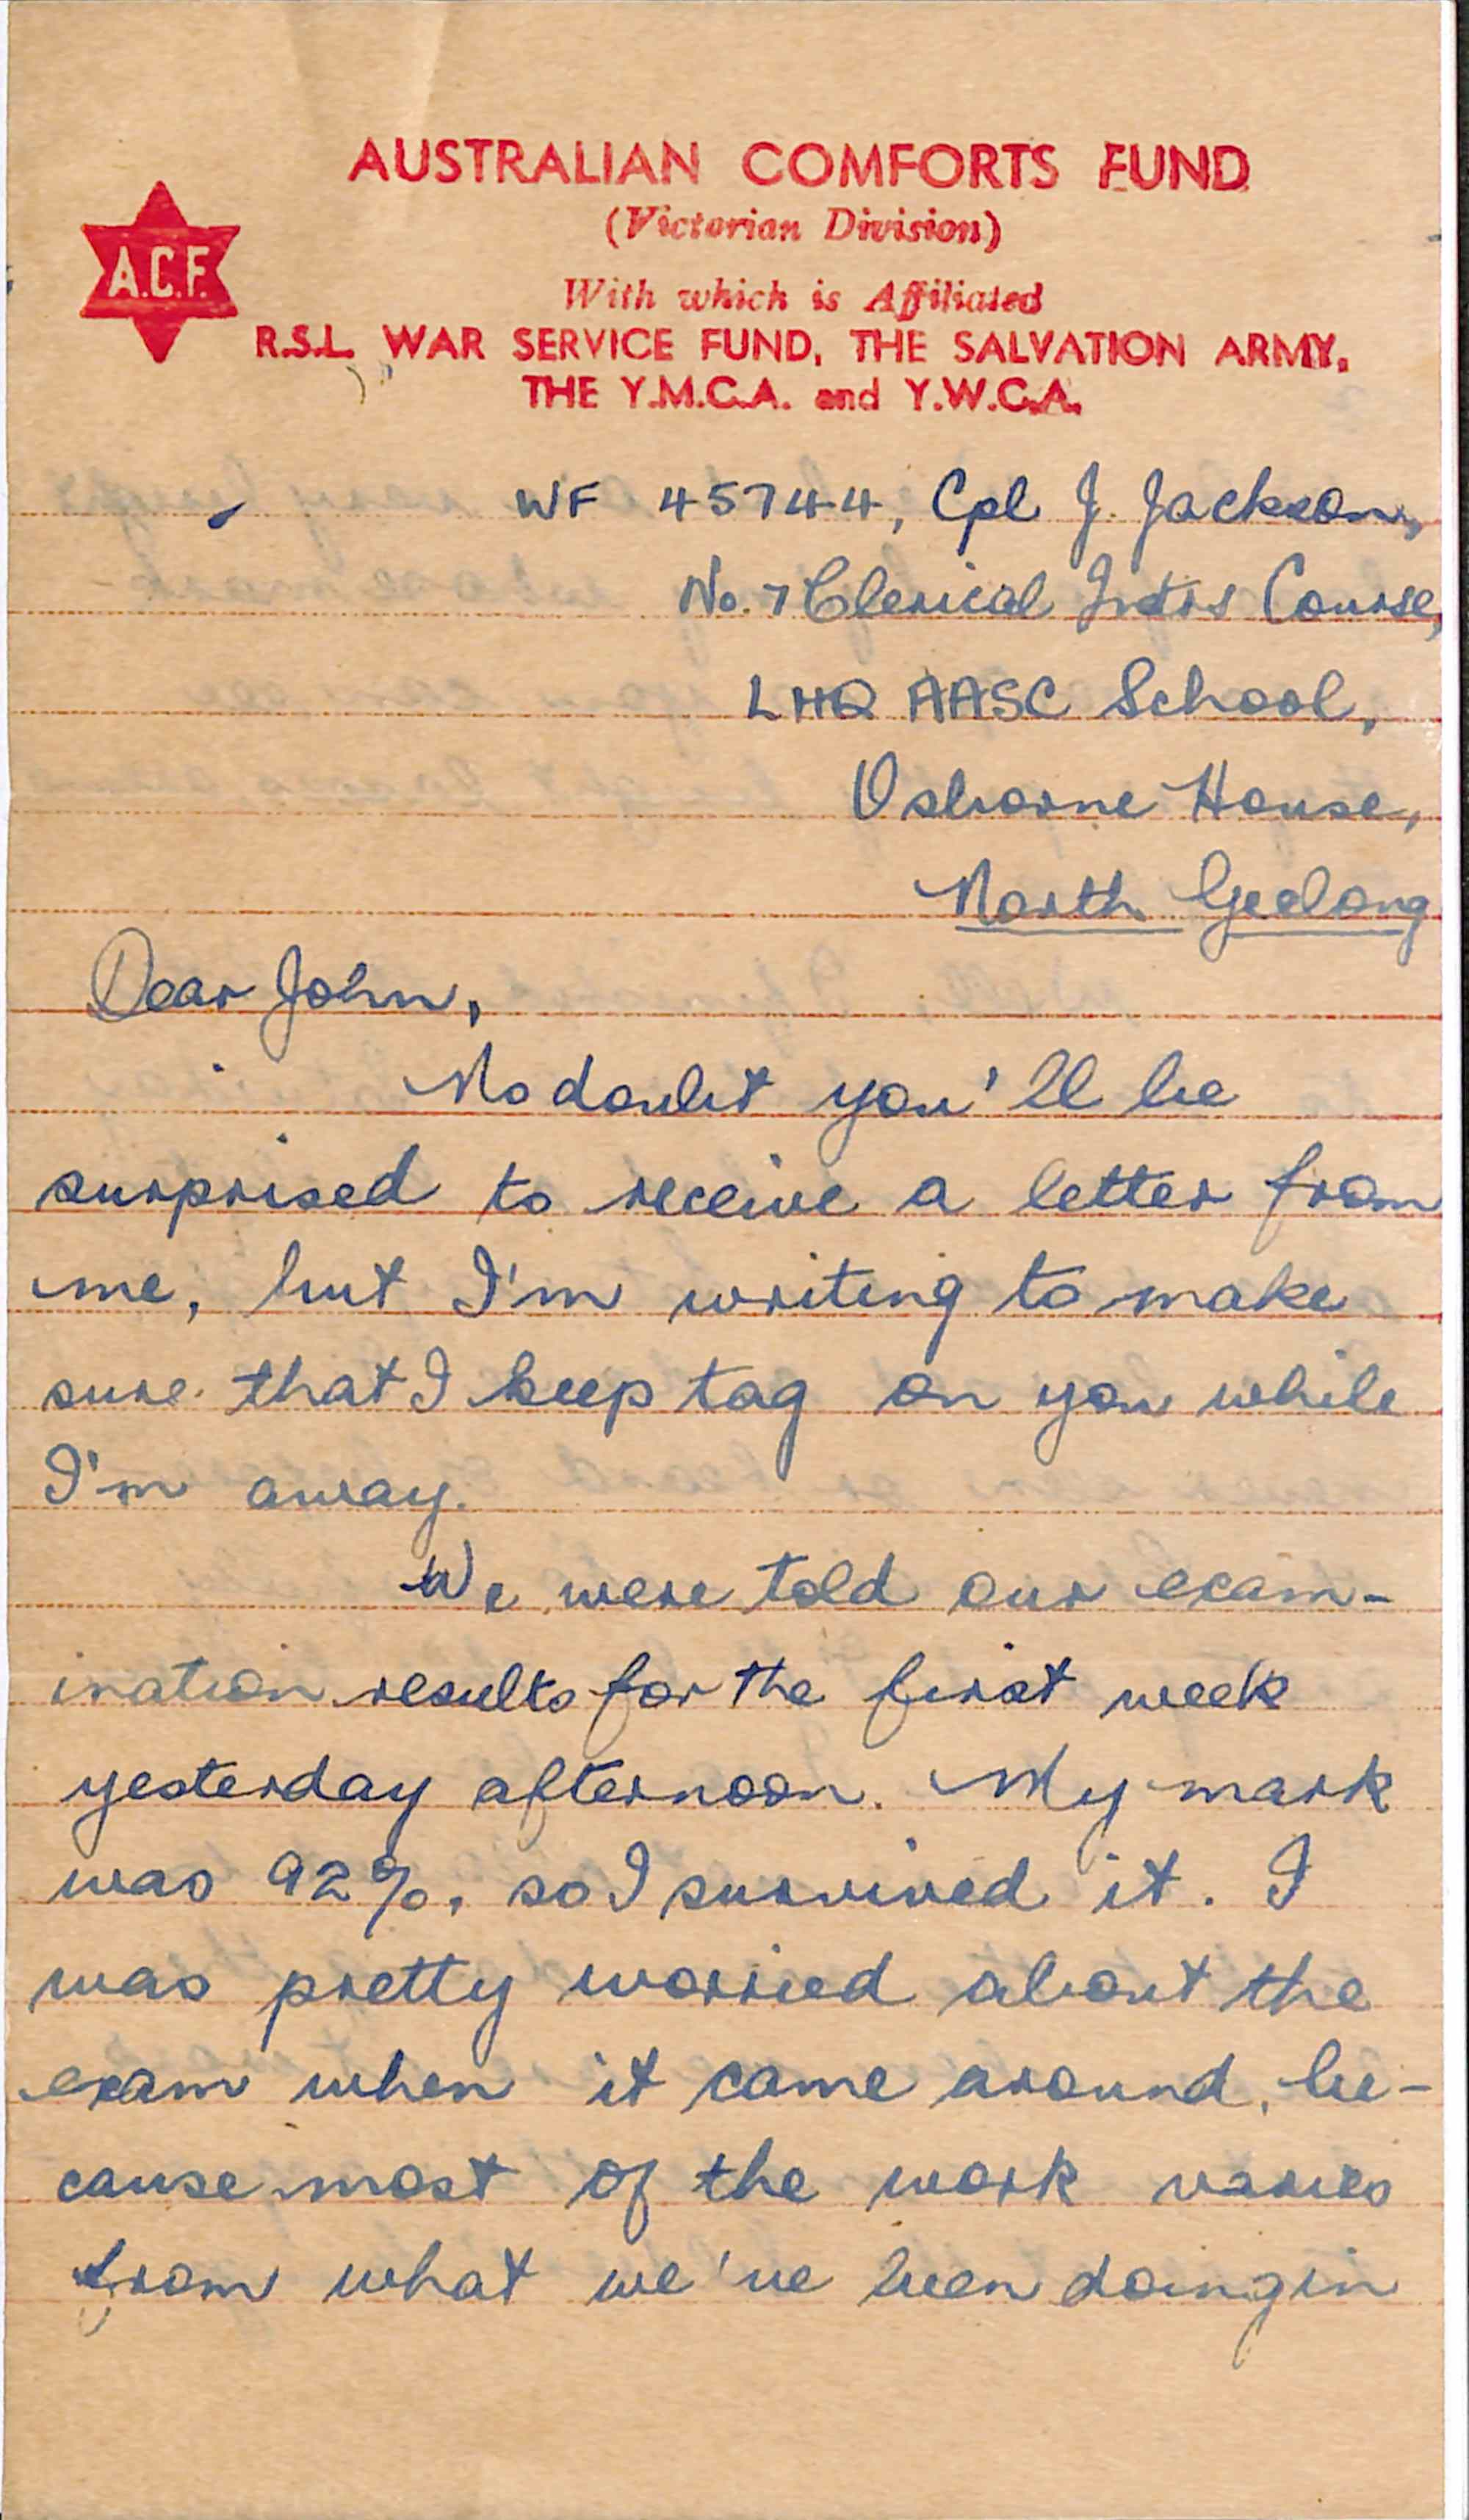 AUSTRALIAN COMFORTS FUND
(Victorian Division)
A.C.F.
With which is Affiliated
R.S.L. WAR SERVICE FUND, THE SALVATION ARMY,
THE Y.M.C.A. and Y.W.C.A.
WF 45744, Cpl J. Jackson,
No. 7 Clerical Course,
LHQ AASC School,
Osborne House,
North Geelong
Dear John,
No doubt you'll be
surprised to receive a letter from
me, but I'm writing to make
sure that I keep tag on you while
I'm away.
We were told our exam-
ination results for the first week
yesterday afternoon. My mark
was 92%, so I survived it. I
was pretty worried about the
exam when it came around, be-
cause most of the work varies
from what we've been doing in